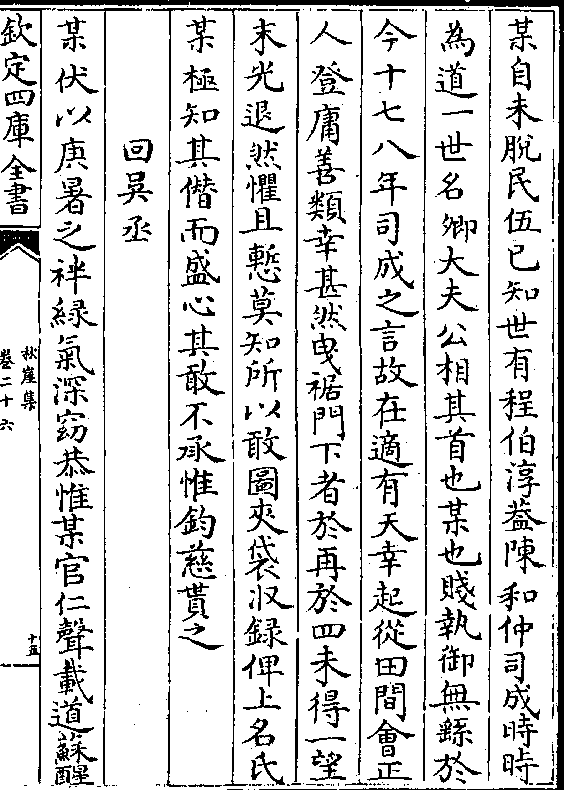 某自未脫民伍已知世有程伯淳葢陳和仲司成時時
為道一世名卿大夫公相其首也某也賤執御無繇於
今十七八年司成之言故在適有天幸起從田間會正
人登庸善類幸甚然曳裾門下者於再於四未得一望
末光退然懼且慙莫知所以敢圖夾袋收録俾上名氏
某極知其僭而盛心其敢不承惟鈞慈貰之
回吳丞
某伏以庚暑之袢緑氣深窈恭惟某官仁聲載道蘇醒
欽定四庫全書
秋崖集
卷二十六
十五